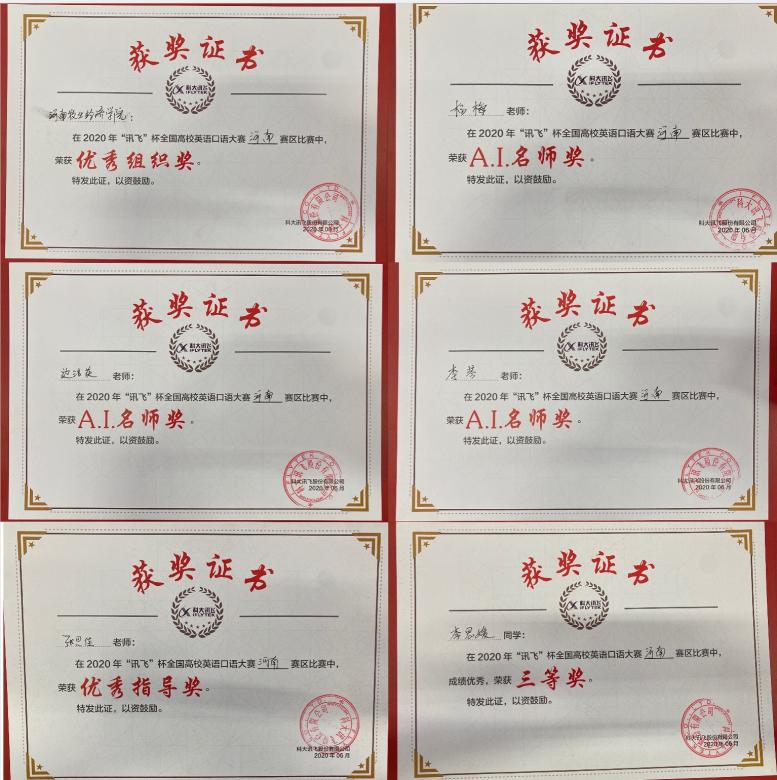 获奖证书
科大讯飞
IFLYTEK
河南牧业经济学院:
在2020年“讯飞”杯全国高校英语口语大赛河南赛区比赛中,
荣获优秀组织奖。
特发此证,以资鼓励。
科大讯飞股份有限公司
2020年06月
获奖证书
科大讯飞
IFLYTEK
杨梅老师:
在2020年“讯飞”杯全国高校英语口语大赛河南赛区比赛中,
荣获A.I.名师奖。
特发此证,以资鼓励。
科大讯飞股份有限公司
2020年06月
获奖证书
科大讯飞
IFLYTEK
老师:
在2020年“讯飞”杯全国高校英语口语大赛河南赛区比赛中,
荣获A.I.名师奖。
特发此证,以资鼓励。
科大讯飞股份有限公司
2020年06月
获奖证书
科大讯飞
IFLYTEK
李琴老师:
在2020年“讯飞”杯全国高校英语口语大赛河南赛区比赛中,
荣获A.I.名师奖。
特发此证,以资鼓励。
科大讯飞股份有限公司
2020年06月
获奖证书
科大讯飞
IFLYTEK
张思佳老师:
在2020年“讯飞”杯全国高校英语口语大赛河南赛区比赛中,
荣获优秀指导奖。
特发此证,以资鼓励。
科大讯飞股份有限公司
2020年06月
获奖证书
科大讯飞
IFLYTEK
李思媛同学:
在2020年“讯飞”杯全国高校英语口语大赛河南赛区比赛中,
成绩优秀,荣获三等奖。
特发此证,以资鼓励。
科大讯飞股份有限公司
2020年06月